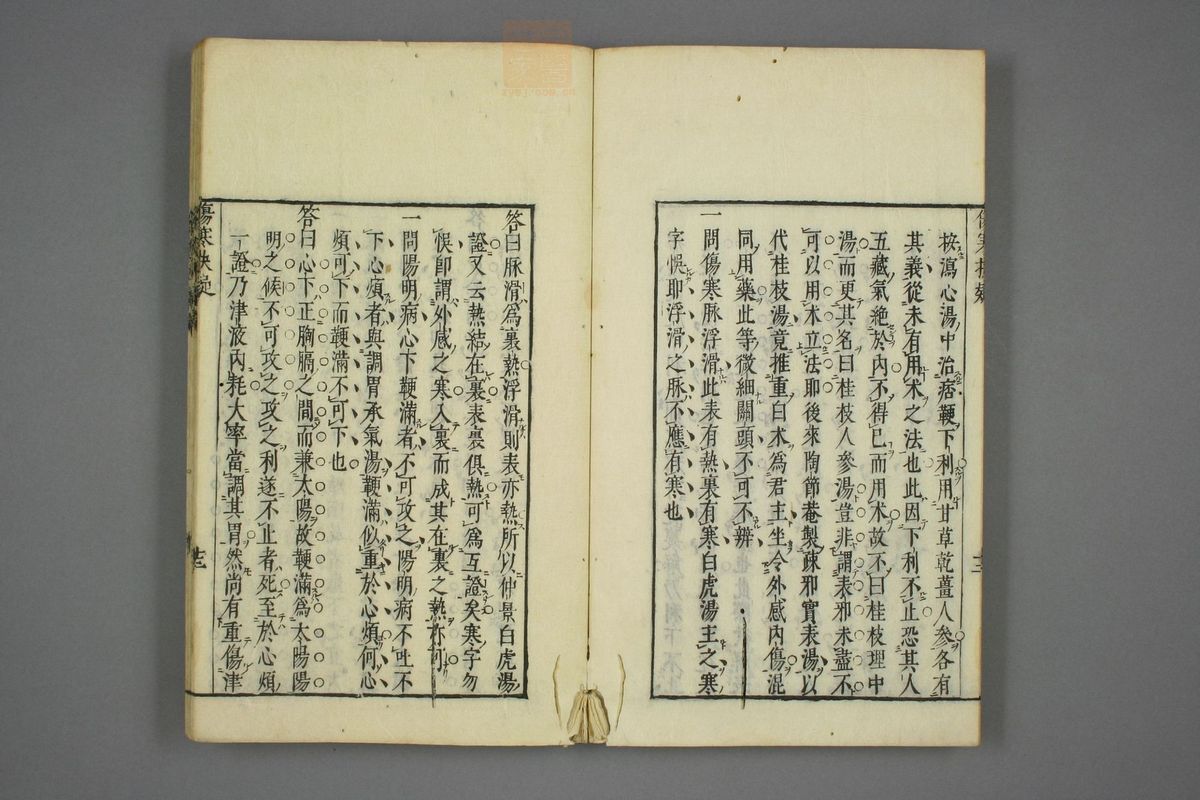 按瀉心湯中治痞鞕下利用甘草乾薑人參各有
其義從未有用朮之法也此因下利不止恐其人
五藏氣絶於內不得已而用朮故不曰桂枝理中
湯而更其名曰桂枝人參湯豈非謂表邪未盡不
可以用朮立法即後來陶節菴製疎邪實表湯以
代桂枝湯竟推重白朮爲君主坐令外感內傷混
同用藥此等微細關頭不可不辨
一問傷寒脉浮滑此表有熱裏有寒白虎湯主之寒
字悞耶浮滑之脉不應有寒也
答曰脉滑爲裏熱浮滑則表亦熱所以仲景白虎湯
證又云熱結在裏表裏俱熱可爲互證矣寒字勿
悞卽謂外感之寒入裏而成其在裏之熱亦可
一問陽明病心下鞕滿者不可攻之陽明病不吐不
下心煩者與調胃承氣湯鞕滿似重於心煩何心
煩可下而鞕滿不可下也
答曰心下正胸膈之間而兼太陽故鞕滿爲太陽陽
明之候不可攻之攻之利遂不止者死至於心煩
一證乃津液內耗大率當調其胃然尚有重傷津
傷寒抉疑
十三